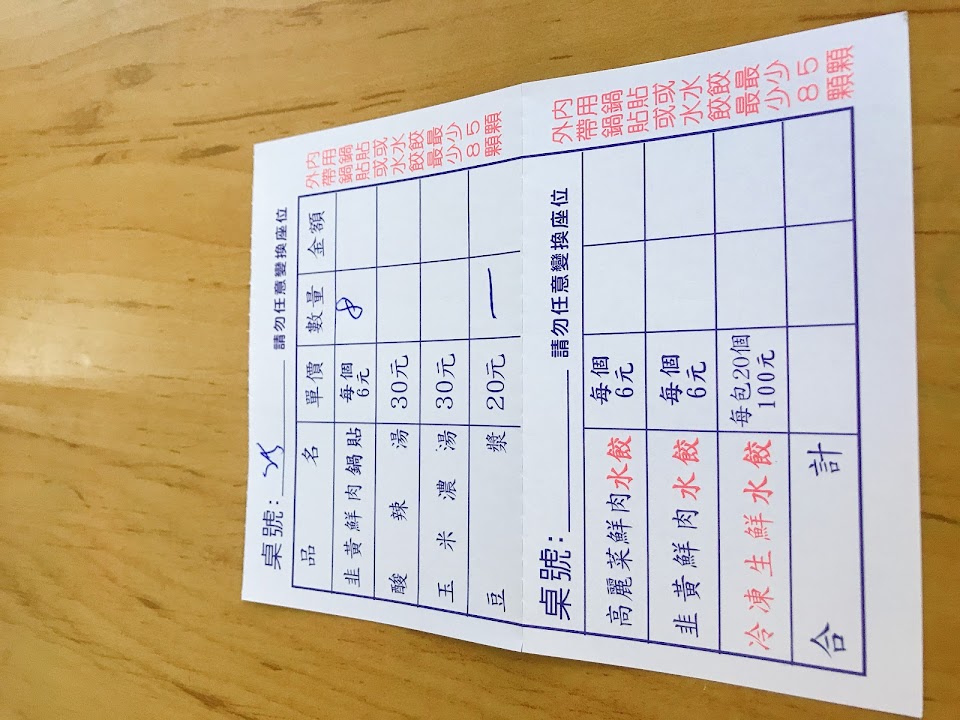 桌號：
請勿任意變換座位
品名 單價 數量 金額
韭黃鮮肉鍋貼 每個6元 8
酸辣湯 30元
玉米濃湯 30元
豆漿 20元 一
外帶鍋貼或水餃最少8顆
內用鍋貼或水餃最少5顆
桌號：
請勿任意變換座位
高麗菜鮮肉水餃 每個6元
韭黃鮮肉水餃 每個6元
冷凍生鮮水餃 每包20個100元
合計
外帶鍋貼或水餃最少8顆
內用鍋貼或水餃最少5顆